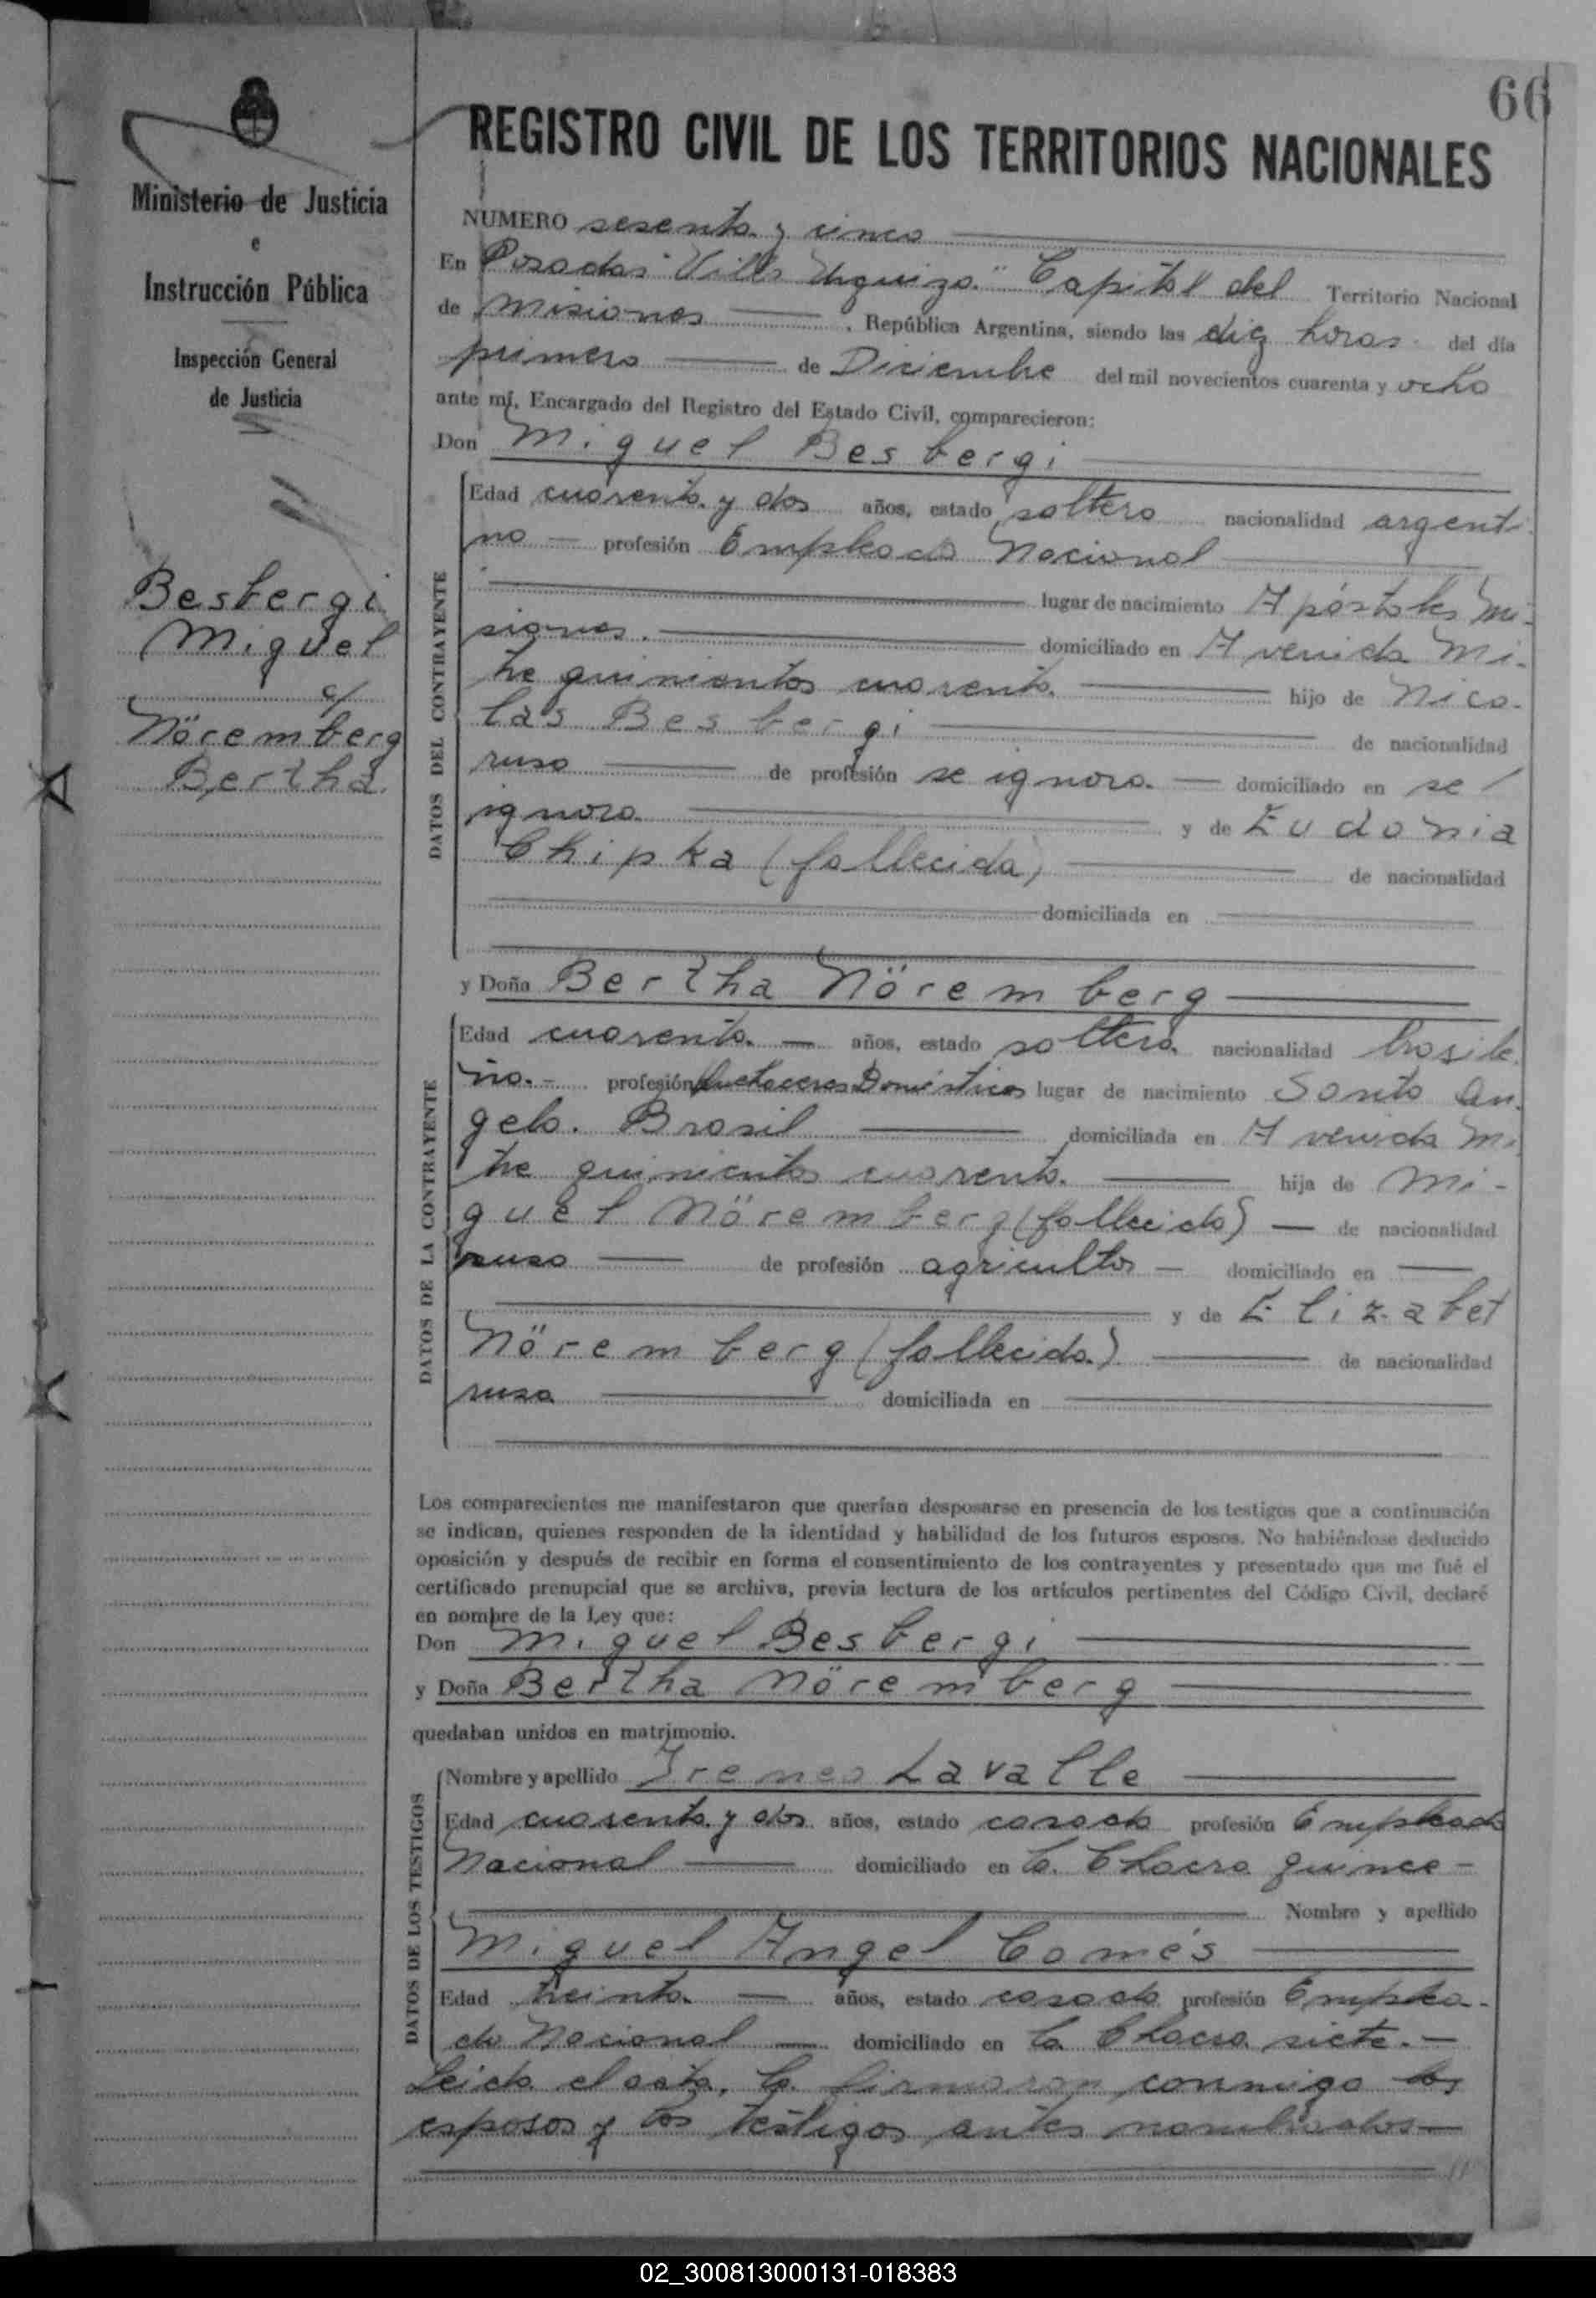 66
Ministerio de Justicia
e
Instrucción Pública
Inspección General
de Justicia
Besbergi
Miguel
c/
Nöremberg
Bertha.
REGISTRO CIVIL DE LOS TERRITORIOS NACIONALES
NUMERO sesenta y cinco
En Posadas "Villa Urquiza" Capital del Territorio Nacional
de Misiones, República Argentina, siendo las diez horas del día
primero de Diciembre del mil novecientos cuarenta y ocho
ante mí, Encargado del Registro del Estado Civil, comparecieron:
Don Miguel Besbergi
DATOS DEL CONTRAYENTE
Edad cuarenta y dos años, estado soltero nacionalidad argenti-
no — profesión Empleado Nacional
lugar de nacimiento Apóstoles Mi-
siones. domiciliado en Avenida Mi-
tre quinientos cuarenta. hijo de Nico-
lás Besbergi de nacionalidad
ruso de profesión se ignora. — domiciliado en se
ignora y de Eudonia
Chipka (fallecida) de nacionalidad
domiciliada en
y Doña Bertha Nöremberg
DATOS DE LA CONTRAYENTE
Edad cuarenta — años, estado soltera nacionalidad brasile-
ña.- profesión Quehaceres Domésticos lugar de nacimiento Santo An-
gelo. Brasil domiciliada en Avenida Mi-
tre quinientos cuarenta. hija de Mi-
guel Nöremberg (fallecido) — de nacionalidad
ruso de profesión agricultor — domiciliado en
y de Elizabet
Nöremberg (fallecida) de nacionalidad
rusa domiciliada en
Los comparecientes me manifestaron que querían desposarse en presencia de los testigos que a continuación
se indican, quienes responden de la identidad y habilidad de los futuros esposos. No habiéndose deducido
oposición y después de recibir en forma el consentimiento de los contrayentes y presentado que me fué el
certificado prenupcial que se archiva, previa lectura de los artículos pertinentes del Código Civil, declaré
en nombre de la Ley que:
Don Miguel Besbergi
y Doña Bertha Nöremberg
quedaban unidos en matrimonio.
DATOS DE LOS TESTIGOS
Nombre y apellido Ireneo Lavalle
Edad cuarenta y dos años, estado casado profesión Empleado
Nacional domiciliado en la Chacra quince —
Nombre y apellido
Miguel Angel Comés
Edad treinta — años, estado casado profesión Emplea-
do Nacional — domiciliado en la Chacra siete. —
Leida el acta, la firmaron conmigo los
esposos y los testigos antes nombrados —
02_300813000131-018383